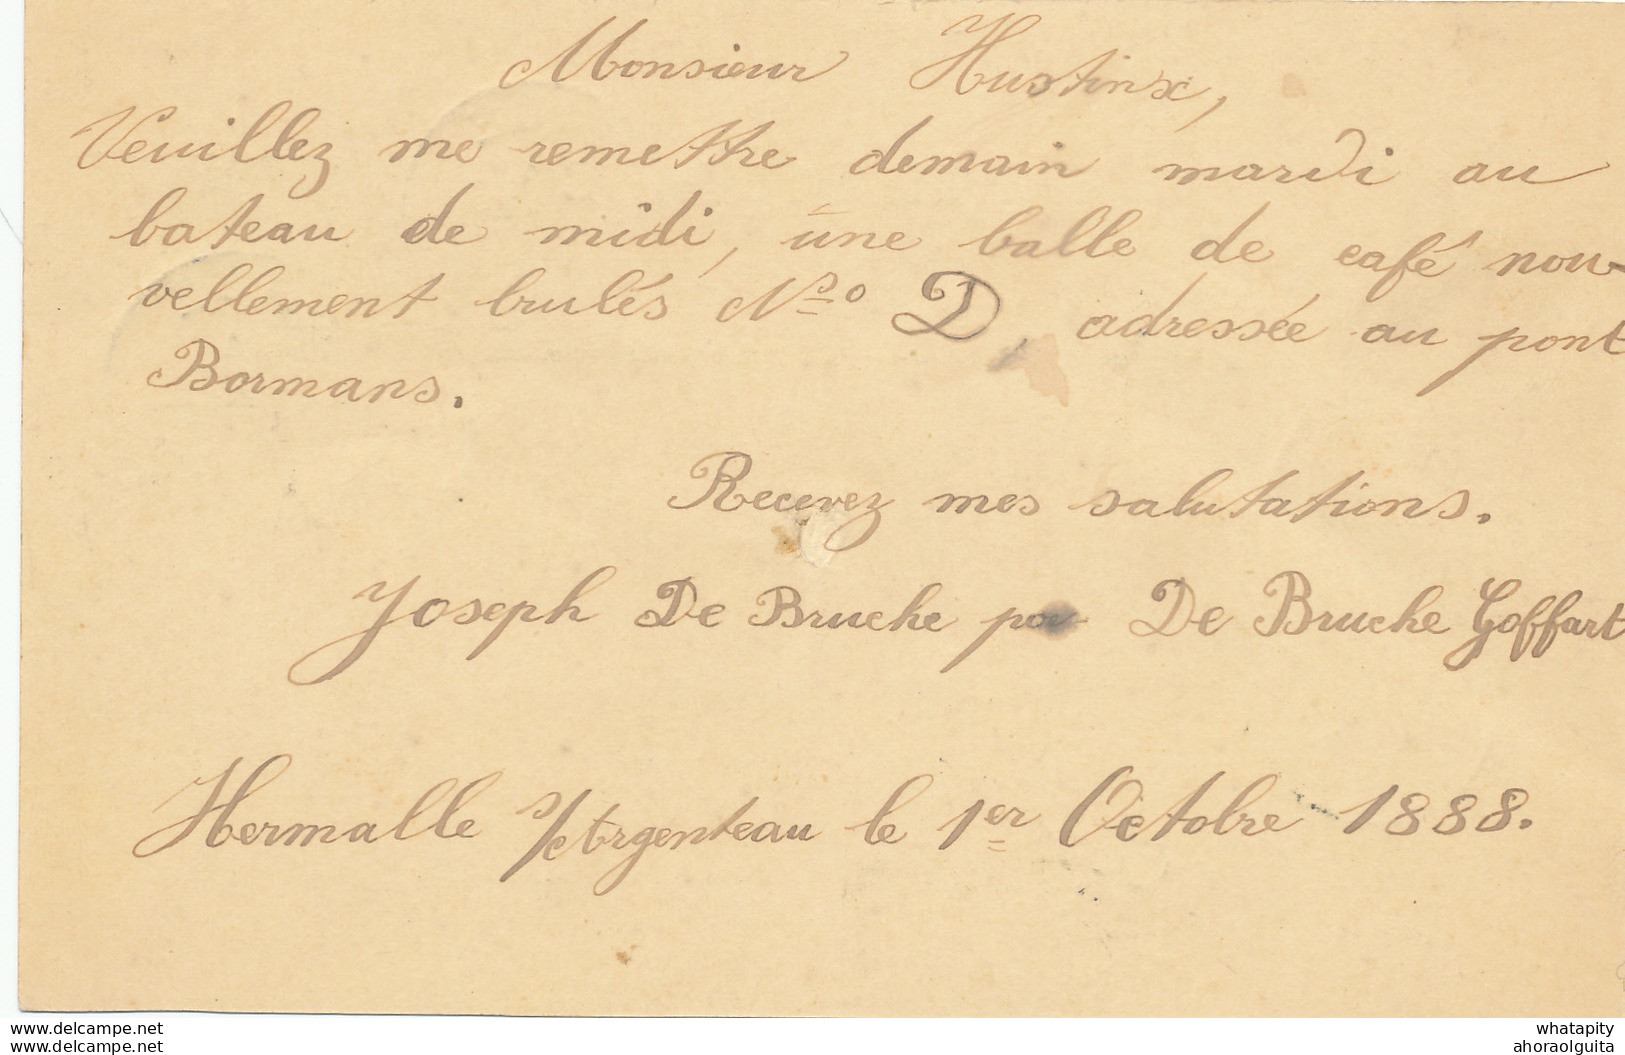 Monsieur Hustinx,
Veuillez me remettre demain mardi au
bateau de midi, une balle de café nou-
vellement brulés No D, adressée au pont
Bormans.
Recevez mes salutations.
Joseph De Bruche De Bruche Goffart
Hermalle s/Argenteau le 1er Octobre 1888.
www.delcampe.net whatapity
www.delcampe.net ahoraolguita